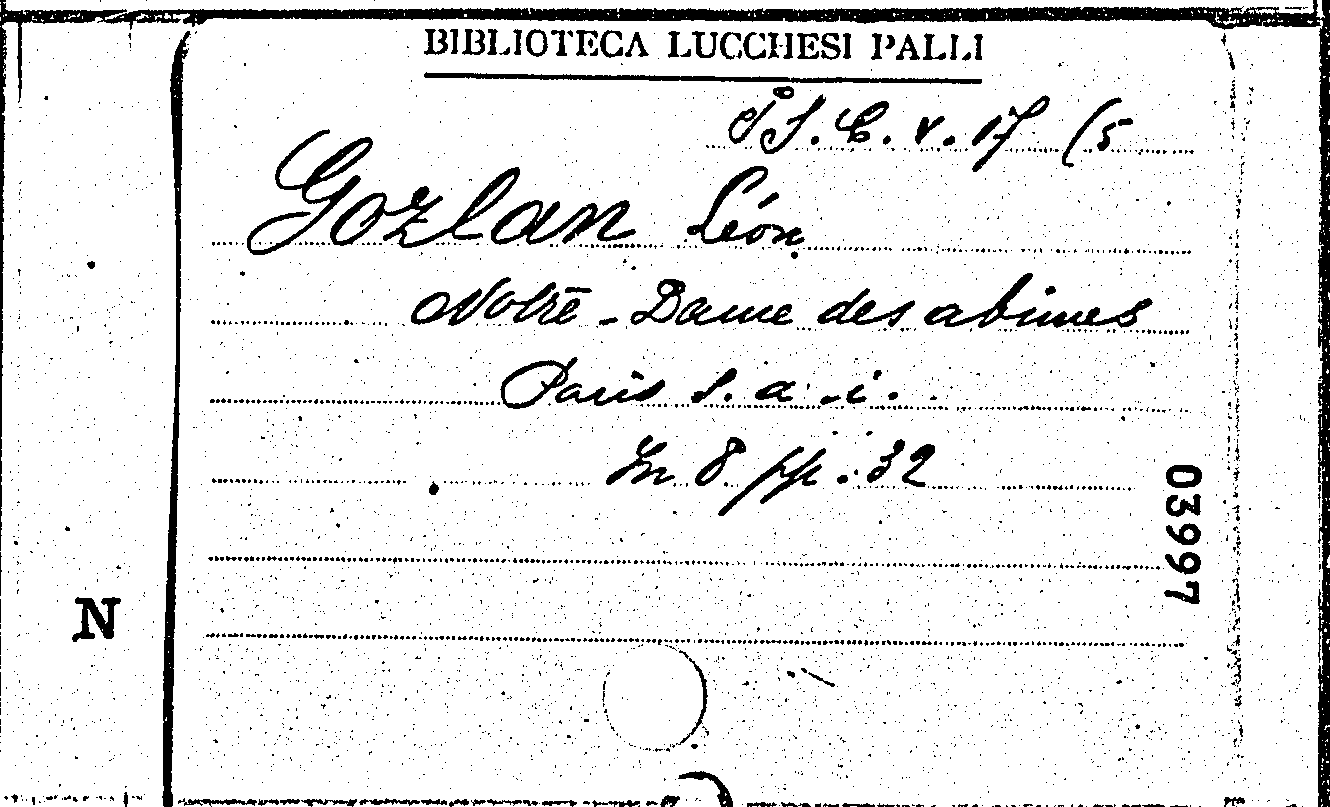 BIBLIOTECA LUCCHESI PALLI
S. C. v. 17 (5
Gozlan Léon
Notre-Dame des abimes
Paris s. a. i.
In 8. pp. 32
03997
N